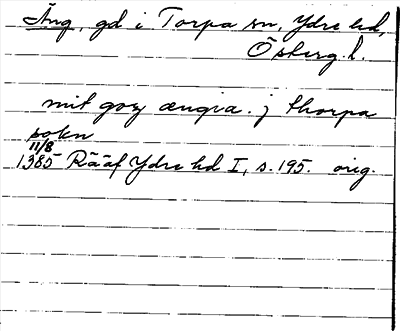 Äng, gd i Torpa sn, Ydre hd,
Östergl. l.
mit goz ængia. j thorpa
sokn
11/8
1385 Rääf Ydre hd I, s. 195. orig.